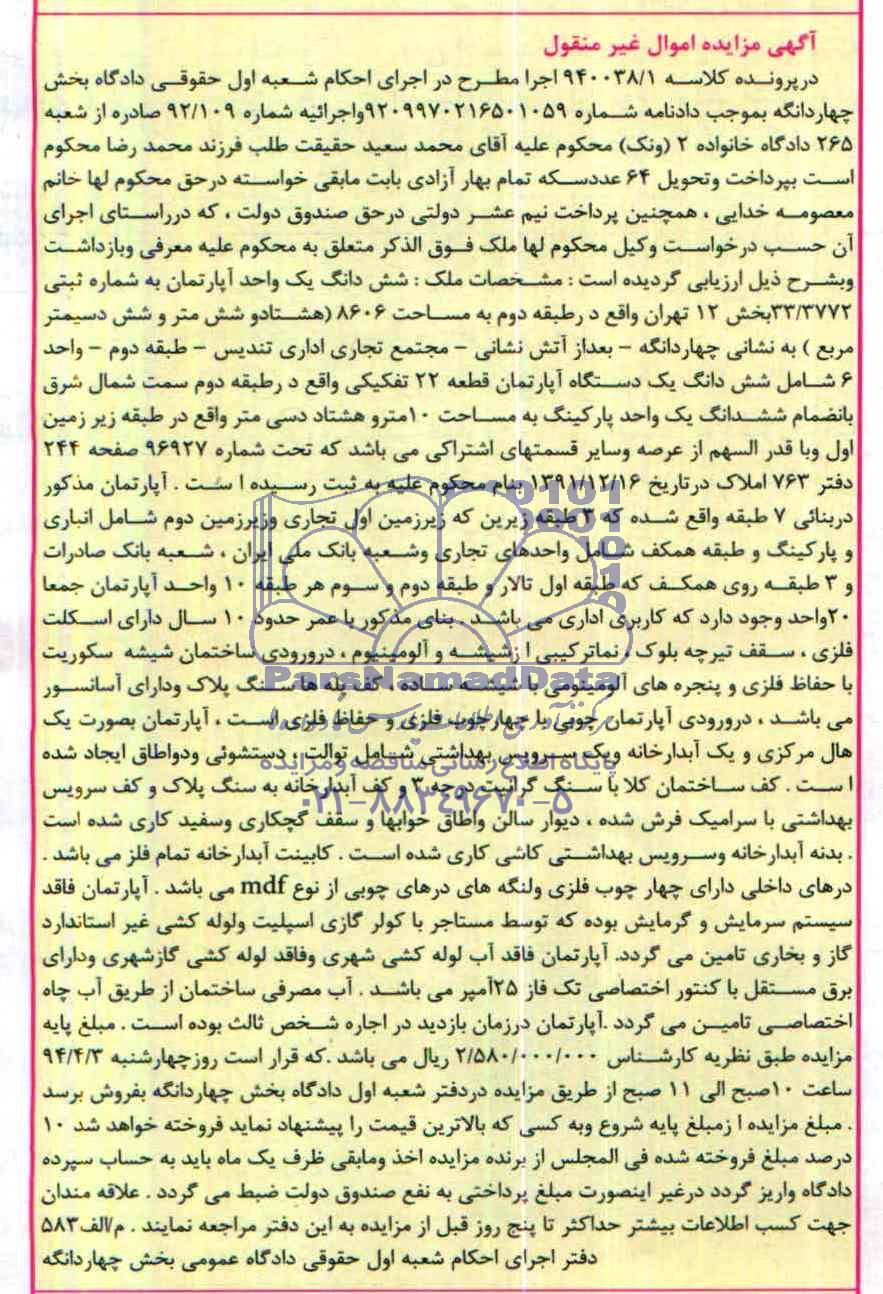 آگهی مزایده اموال غیر منقول
درپرونده کلاسه ۹۴۰۰۳۸/۱ اجرا مطرح در اجرای احکام شعبه اول حقوقی دادگاه بخش
چهاردانگه بموجب دادنامه شماره ۹۲۰۹۹۷۰۲۱۶۵۰۱۰۵۹واجرائیه شماره ۹۲/۱۰۹ صادره از شعبه
۲۶۵ دادگاه خانواده ۲ (ونک) محکوم علیه آقای محمد سعید حقیقت طلب فرزند محمد رضا محکوم
است بپرداخت وتحویل ۶۴ عددسکه تمام بهار آزادی بابت مابقی خواسته درحق محکوم لها خانم
معصومه خدایی ، همچنین پرداخت نیم عشر دولتی درحق صندوق دولت ، که درراستای اجرای
آن حسب درخواست وکیل محکوم لها ملک فوق الذکر متعلق به محکوم علیه معرفی وبازداشت
وبشرح ذیل ارزیابی گردیده است : مشخصات ملک : شش دانگ یک واحد آپارتمان به شماره ثبتی
۳۳/۳۷۷۲بخش ۱۲ تهران واقع د رطبقه دوم به مساحت ۸۶۰۶ (هشتادو شش متر و شش دسیمتر
مربع ) به نشانی چهاردانگه - بعداز آتش نشانی - مجتمع تجاری اداری تندیس - طبقه دوم - واحد
۶ شامل شش دانگ یک دستگاه آپارتمان قطعه ۲۲ تفکیکی واقع د رطبقه دوم سمت شمال شرق
بانضمام ششدانگ یک واحد پارکینگ به مساحت ۱۰مترو هشتاد دسی متر واقع در طبقه زیر زمین
اول وبا قدر السهم از عرصه وسایر قسمتهای اشتراکی می باشد که تحت شماره ۹۶۹۲۷ صفحه ۲۴۴
دفتر ۷۶۳ املاک درتاریخ ۱۳۹۱/۱۲/۱۶ بنام محکوم علیه به ثبت رسیده ا ست . آپارتمان مذکور
دربنائی ۷ طبقه واقع شده که ۳ طبقه زیرین که زیرزمین اول تجاری وزیرزمین دوم شامل انباری
و پارکینگ و طبقه همکف شامل واحدهای تجاری وشعبه بانک ملی ایران ، شعبه بانک صادرات
و ۳ طبقه روی همکف که طبقه اول تالار و طبقه دوم و سوم هر طبقه ۱۰ واحد آپارتمان جمعا
۲۰واحد وجود دارد که کاربری اداری می باشد . بنای مذکور با عمر حدود ۱۰ سال دارای اسکلت
فلزی ، سقف تیرچه بلوک ، نماترکیبی ا زشیشه و آلومینیوم ، درورودی ساختمان شیشه سکوریت
با حفاظ فلزی و پنجره های آلومینومی با شیشه ساده ، کف پله ها سنگ پلاک ودارای آسانسور
می باشد ، درورودی آپارتمان چوبی با چهارچوب فلزی و حفاظ فلزی است ، آپارتمان بصورت یک
هال مرکزی و یک آبدارخانه ویک سرویس بهداشتی شامل توالت ، دستشوئی ودواطاق ایجاد شده
ا ست . کف ساختمان کلا با سنگ گرانیت درجه ۳ و کف آبدارخانه به سنگ پلاک و کف سرویس
بهداشتی با سرامیک فرش شده ، دیوار سالن واطاق خوابها و سقف گچکاری وسفید کاری شده است
. بدنه آبدارخانه وسرویس بهداشتی کاشی کاری شده است . کابینت آبدارخانه تمام فلز می باشد .
درهای داخلی دارای چهار چوب فلزی ولنگه های درهای چوبی از نوع mdf می باشد . آپارتمان فاقد
سیستم سرمایش و گرمایش بوده که توسط مستاجر با کولر گازی اسپلیت ولوله کشی غیر استاندارد
گاز و بخاری تامین می گردد. آپارتمان فاقد آب لوله کشی شهری وفاقد لوله کشی گازشهری ودارای
برق مستقل با کنتور اختصاصی تک فاز ۲۵آمپر می باشد . آب مصرفی ساختمان از طریق آب چاه
اختصاصی تامین می گردد .آپارتمان درزمان بازدید در اجاره شخص ثالث بوده است . مبلغ پایه
مزایده طبق نظریه کارشناس ۲/۵۸۰/۰۰۰/۰۰۰ ریال می باشد .که قرار است روزچهارشنبه ۹۴/۴/۳
ساعت ۱۰صبح الی ۱۱ صبح از طریق مزایده دردفتر شعبه اول دادگاه بخش چهاردانگه بفروش برسد
. مبلغ مزایده ا زمبلغ پایه شروع وبه کسی که بالاترین قیمت را پیشنهاد نماید فروخته خواهد شد ۱۰
درصد مبلغ فروخته شده فی المجلس از برنده مزایده اخذ ومابقی ظرف یک ماه باید به حساب سپرده
دادگاه واریز گردد درغیر اینصورت مبلغ پرداختی به نفع صندوق دولت ضبط می گردد . علاقه مندان
جهت کسب اطلاعات بیشتر حداکثر تا پنج روز قبل از مزایده به این دفتر مراجعه نمایند . م/الف۵۸۳
دفتر اجرای احکام شعبه اول حقوقی دادگاه عمومی بخش چهاردانگه
ParsNamadData
پایگاه اطلاع رسانی مناقصه و مزایده
۰۲۱-۸۸۳۴۹۶۷۰-۵